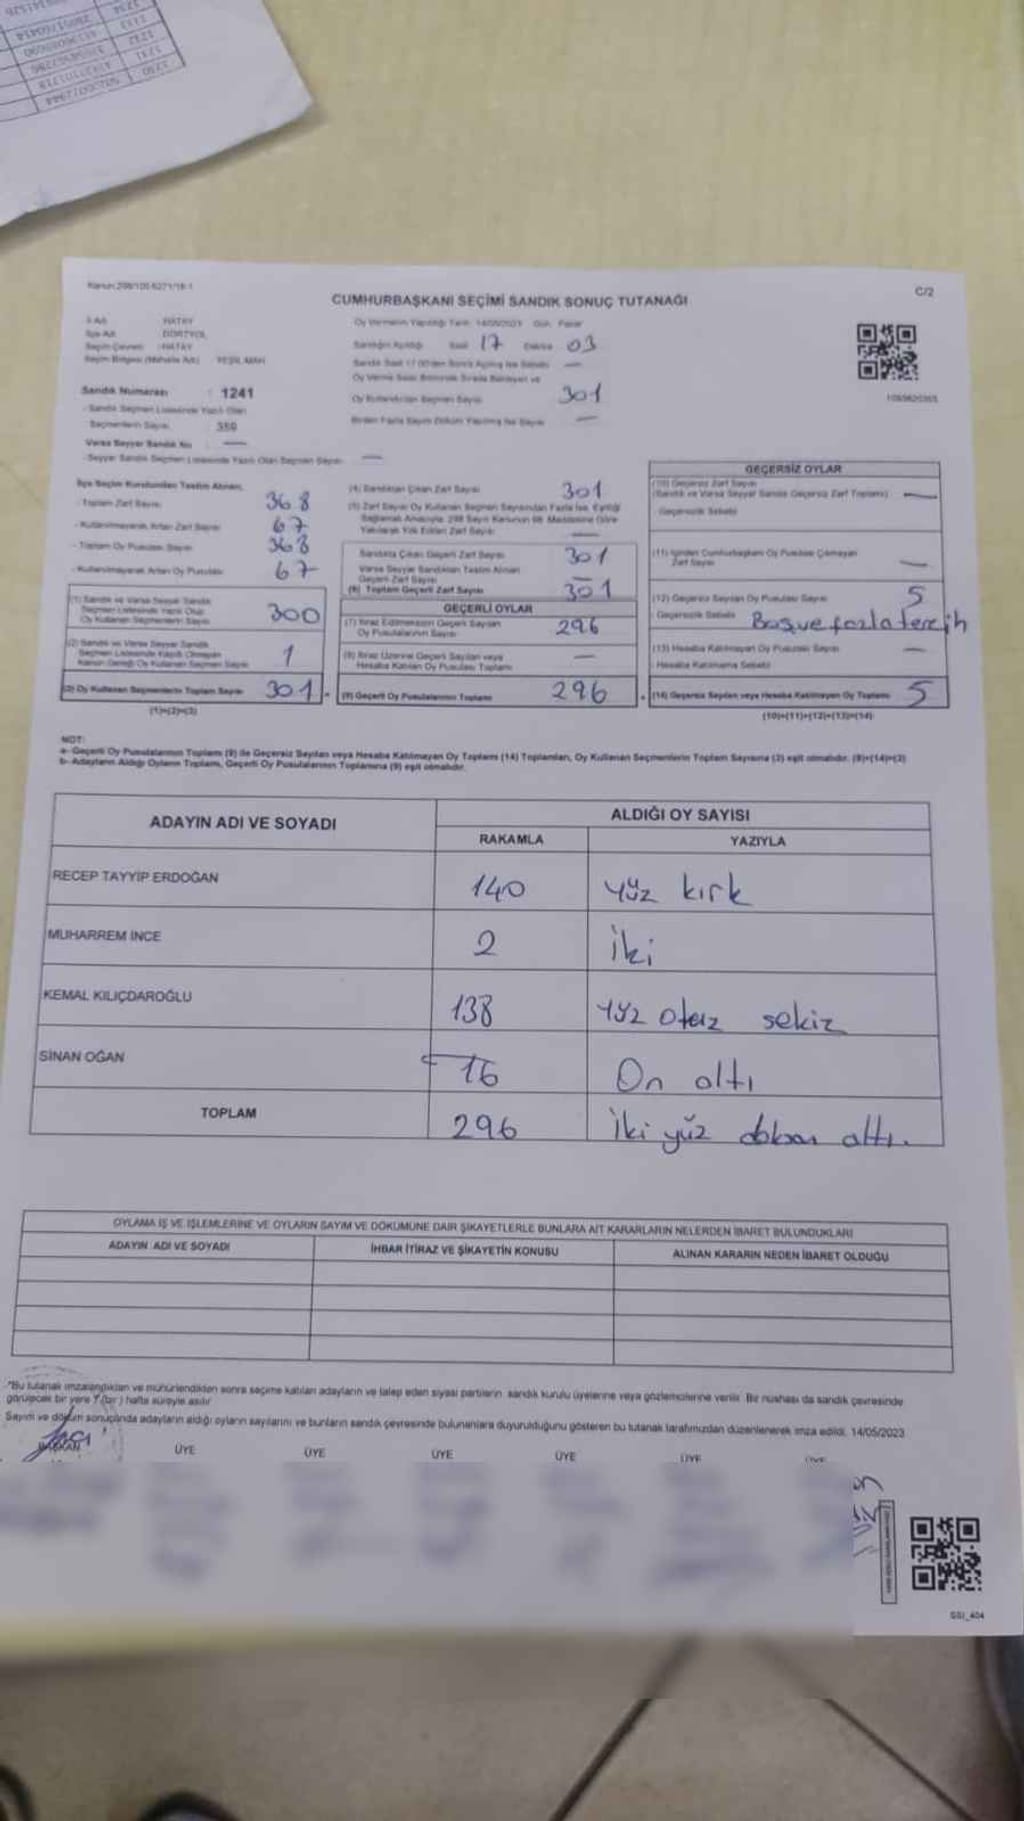 CUMHURBAŞKANI SEÇİMİ SANDIK SONUÇ TUTANAĞI
C/2
İl Adı HATAY
İlçe Adı DÖRTYOL
Seçim Çevresi HATAY
Seçim Bölgesi (Mahalle Adı) YEŞİL MAH
Sandık Numarası : 1241
Sandık Seçmen Listesinde Yazılı Olan
Seçmenlerin Sayısı
Varsa Seyyar Sandık No —
- Seyyar Sandık Seçmen Listesinde Yazılı Olan Seçmen Sayısı —
Oy Vermenin Yapıldığı Tarih 14/05/2023 Gün Pazar
Sandığın Açıldığı Saat 17 Dakika 03
—
301
—
İlçe Seçim Kurulundan Teslim Alınan;
- Toplam Zarf Sayısı 368
- Kullanılmayarak Artan Zarf Sayısı 67
- Toplam Oy Pusulası Sayısı 368
- Kullanılmayarak Artan Oy Pusulası 67
(1) Sandık ve Varsa Seyyar Sandık
Seçmen Listesinde Yazılı Olup
Oy Kullanan Seçmenlerin Sayısı 300
(2) Sandık ve Varsa Seyyar Sandık
Seçmen Listesinde Yazılı Olmayan
Kanun Gereği Oy Kullanan Seçmen Sayısı 1
(3) Oy Kullanan Seçmenlerin Toplam Sayısı 301
(1)+(2)=(3)
(4) Sandıktan Çıkan Zarf Sayısı 301
—
Sandıkta Çıkan Geçerli Zarf Sayısı 301
Varsa Seyyar Sandıktan Teslim Alınan
Geçerli Zarf Sayısı —
(6) Toplam Geçerli Zarf Sayısı 301
GEÇERLİ OYLAR
(7) İtiraz Edilmeksizin Geçerli Sayılan
Oy Pusulalarının Sayısı 296
(8) İtiraz Üzerine Geçerli Sayılan veya
Hesaba Katılan Oy Pusulası Toplamı —
(9) Geçerli Oy Pusulalarının Toplamı 296
GEÇERSİZ OYLAR
(10) Geçersiz Zarf Sayısı
(Sandık ve Varsa Seyyar Sandık Geçersiz Zarf Toplamı) —
Geçersizlik Sebebi
(11) İçinden Cumhurbaşkanı Oy Pusulası Çıkmayan
Zarf Sayısı —
(12) Geçersiz Sayılan Oy Pusulası Sayısı 5
Geçersizlik Sebebi Boş ve fazla tercih
(13) Hesaba Katılmayan Oy Pusulası Sayısı —
Hesaba Katılmama Sebebi
(14) Geçersiz Sayılan veya Hesaba Katılmayan Oy Toplamı 5
(10)+(11)+(12)+(13)=(14)
NOT:
a- Geçerli Oy Pusulalarının Toplamı (9) ile Geçersiz Sayılan veya Hesaba Katılmayan Oy Toplamı (14) Toplamları, Oy Kullanan Seçmenlerin Toplam Sayısına (3) eşit olmalıdır. (9)+(14)=(3)
b- Adayların Aldığı Oyların Toplamı, Geçerli Oy Pusulalarının Toplamına (9) eşit olmalıdır.
ADAYIN ADI VE SOYADI ALDIĞI OY SAYISI
RAKAMLA YAZIYLA
RECEP TAYYİP ERDOĞAN 140 yüz kırk
MUHARREM İNCE 2 iki
KEMAL KILIÇDAROĞLU 138 yüz otuz sekiz
SİNAN OĞAN 16 On altı
TOPLAM 296 iki yüz doksan altı.
OYLAMA İŞ VE İŞLEMLERİNE VE OYLARIN SAYIM VE DÖKÜMÜNE DAİR ŞİKAYETLERLE BUNLARA AİT KARARLARIN NELERDEN İBARET BULUNDUKLARI
ADAYIN ADI VE SOYADI İHBAR İTİRAZ VE ŞİKAYETİN KONUSU ALINAN KARARIN NEDEN İBARET OLDUĞU
"Bu tutanak imzalandıktan ve mühürlendikten sonra seçime katılan adayların ve talep eden siyasi partilerin sandık kurulu üyelerine veya gözlemcilerine verilir. Bir nüshası da sandık çevresinde
görülecek bir yere 1 (bir) hafta süreyle asılır
Sayım ve döküm sonuçlarında adayların aldığı oyların sayılarını ve bunların sandık çevresinde bulunanlara duyurulduğunu gösteren bu tutanak tarafımızdan düzenlenerek imza edildi. 14/05/2023
BAŞKAN ÜYE ÜYE ÜYE ÜYE ÜYE ÜYE